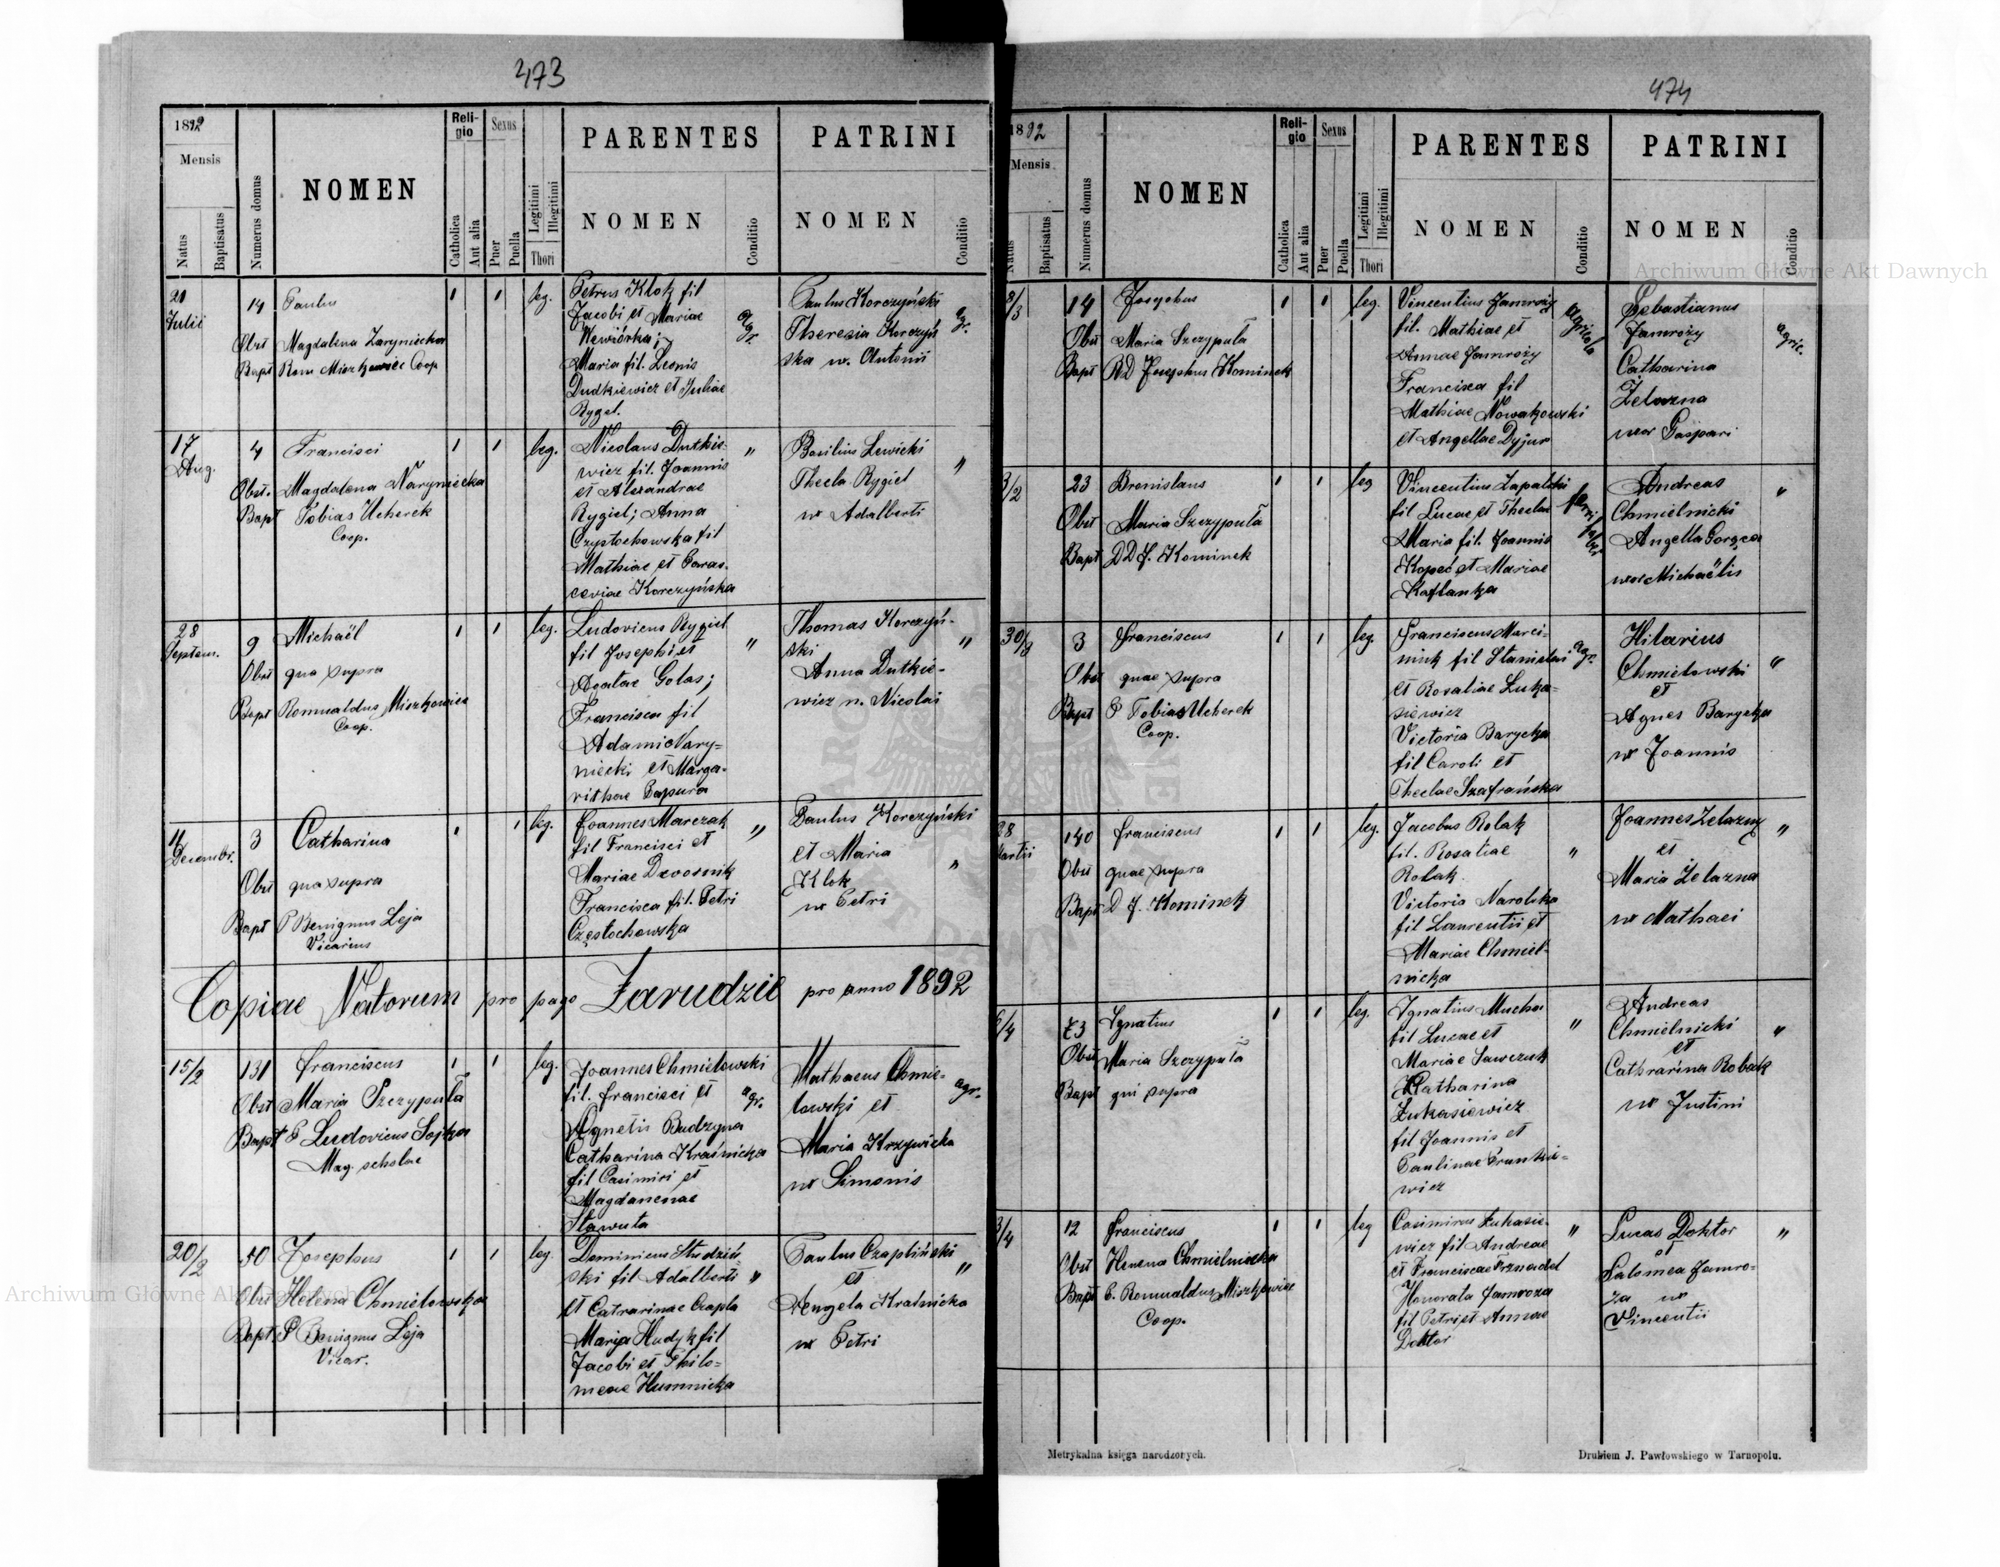 473
1892
Mensis
Natus
Baptisatus
Numerus domus
NOMEN
Religio
Catholica
Aut alia
Sexus
Puer
Puella
Legitimi
Illegitimi
Thori
PARENTES
NOMEN
Conditio
PATRINI
NOMEN
Conditio
21 Julii
14
Paulus
Obst Magdalena Zaryniecka
Bapt Rom Miszkowicz Coop
leg.
Petrus Klok fil
Jacobi et Mariae
Wewiórka;
Maria fil. Leonis
Dudkiewicz et Juliae
Rygel.
agr.
Paulus Korczyński
Theresia Korczyń
ska w. Antonii
agr.
17 Aug.
4
Francisci
Obst. Magdalena Naryniecka
Bapt Tobias Ucherek
Coop.
leg.
Nicolaus Dutkie-
wicz fil. Joannis
et Alexandrae
Rygiel; Anna
Częstochowska fil
Mathiae et Paras-
ceviae Korczyńska
"
Basilius Lewicki
Thecla Rygiel
w Adalberti
"
28 Septem.
9
Michaël
Obst qua supra
Bapt Romualdus Miszkowicz
Coop.
leg.
Ludovicus Rygiel
fil Josephi et
Agatae Golas;
Francisca fil
Adami Nary-
niecki et Marga-
rithae Capura
"
Thomas Korczyń-
ski
Anna Dutkie-
wicz n. Nicolai
"
Decembr.
3
Catharina
Obst qua supra
Bapt P Benignus Leja
Vicarius
leg.
Joannes Marczak
fil Francisci et
Mariae Dwornik
Francisca fil. Petri
Częstochowska
"
Paulus Korczyński
et Maria
Klok
w Petri
"
Copiae Natorum pro pago Zarudzie pro anno 1892
15/2
131
Franciscus
Obst Maria Szczypuła
Bapt P Ludovicus Sojka
Mag. scholae
leg.
Joannes Chmielowski
fil. Francisci et
Agnetis Budzyna
Catharina Kraśnicka
fil Casimiri et
Magdanenae
Sławuta
agr.
Mathaeus Chmie-
lowski et
Maria Krzywicka
w Simonis
agr.
20/2
50
Josephus
Obst Helena Chmielowska
Bapt P Benignus Leja
Vicar.
leg.
Dominicus Studziń-
ski fil Adalberti
et Catrarinae Czapla
Marya Hudyk fil
Jacobi et Philo-
menae Humnicka
"
Paulus Czapliński
et
Angela Kralnicka
w Petri
"
474
1892
Mensis
Natus
Baptisatus
Numerus domus
NOMEN
Religio
Catholica
Aut alia
Sexus
Puer
Puella
Legitimi
Illegitimi
Thori
PARENTES
NOMEN
Conditio
PATRINI
NOMEN
Conditio
8/3
14
Josephus
Obst Maria Szczypuła
Bapt RD Josephus Kominek
leg.
Vincentius Jamroży
fil. Mathiae et
Annae Jamroży
Francisca fil
Mathiae Nowakowski
et Angellae Dyjur
agricola
Sebastianus
Jamroży
Catharina
Żelazna
uxor Gaspari
agric.
3/2
23
Bronislaus
Obst Maria Szczypuła
Bapt DD J. Kominek
leg
Vincentius Zapalski
fil Lucae et Theclae
Maria fil. Joannis
Kopeć et Mariae
Kaflanka
Andreas
Chmielnicki
Angella Gorąca
uxor Michaëlis
"
3
Franciscus
Obst quae supra
Bapt P Tobias Ucherek
Coop.
leg.
Franciscus Marci-
niuk fil Stanislai
et Rosaliae Łuka-
siewicz
Victoria Barycka
fil Caroli et
Theclae Szafrańska
agr.
Hilarius
Chmielowski
et
Agnes Barycka
w Joannis
"
28 Martii
140
Franciscus
Obst quae supra
Bapt D J. Kominek
leg.
Jacobus Rolak
fil. Rosaliae
Rolak
Victoria Narolska
fil Laurentii et
Mariae Chmiel-
nicka
"
Joannes Żelazny
et
Maria Żelazna
w Mathaei
"
6/4
73
Ignatius
Obst Maria Szczypuła
Bapt qui supra
leg.
Ignatius Mucha
fil Lucae et
Mariae Sawczuk
Catharina
Łukasiewicz
fil Joannis et
Paulinae Frankie-
wicz
"
Andreas
Chmielnicki
et
Cathrarina Robak
w Justini
"
3/4
12
Franciscus
Obst Helena Chmielnicka
Bapt P. Romualdus Miszkowicz
Coop.
leg
Casimirus Łukasie-
wicz fil Andreae
et Franciscae Trznadel
Honorata Jamroza
fil Petri et Annae
Doktor
"
Lucas Doktor
et
Salomea Jamro-
za w
Vincentii
"
Metrykalna księga narodzonych.
Drukiem J. Pawłowskiego w Tarnopolu.
Archiwum Główne Akt Dawnych
Archiwum Główne Akt Dawnych